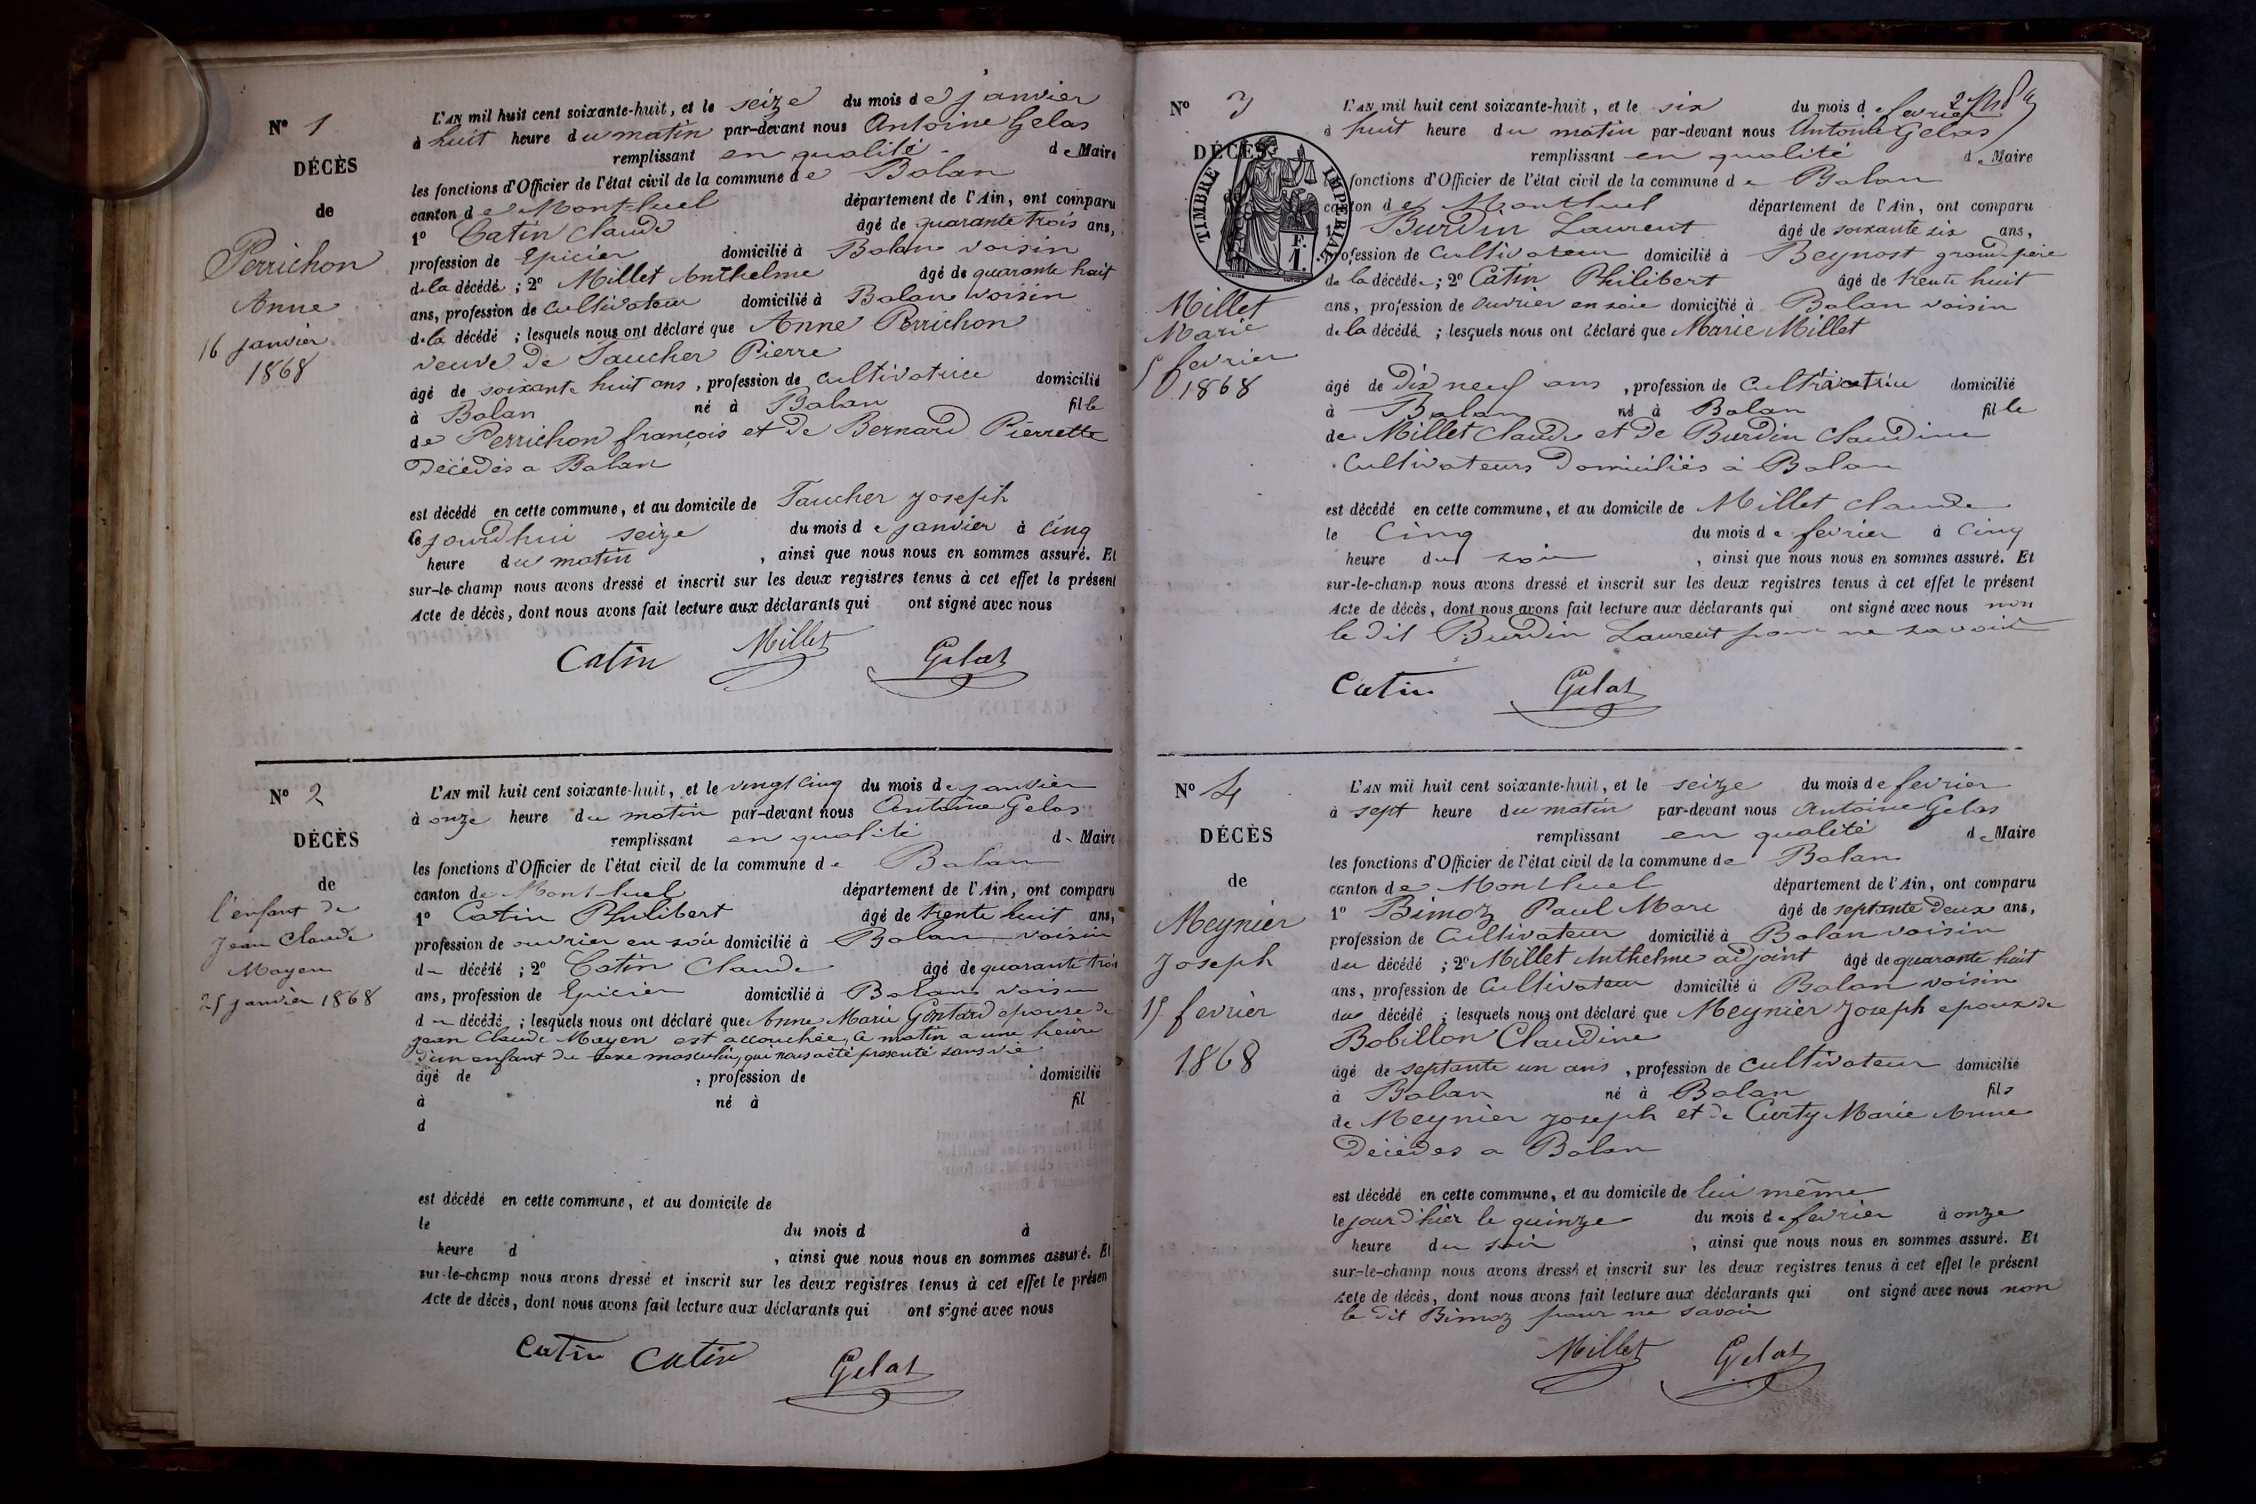 N° 1
DÉCÈS
de
Perrichon
Anne
16 janvier
1868
L'AN mil huit cent soixante-huit, et le seize du mois de janvier
à huit heure du matin par-devant nous Antoine Gelas
remplissant en qualité de Maire
les fonctions d'Officier de l'état civil de la commune de Balan
canton de Montluel département de l'Ain, ont comparu
1° Catin Claude âgé de quarante trois ans,
profession de Epicier domicilié à Balan voisin
de la décédée ; 2° Millet Anthelme âgé de quarante huit
ans, profession de Cultivateur domicilié à Balan voisin
de la décédé ; lesquels nous ont déclaré que Anne Perrichon
veuve de Faucher Pierre
âgé de soixante huit ans, profession de cultivatrice domicilié
à Balan né à Balan fille
de Perrichon françois et de Bernard Pierrette
Décédés a Balan
est décédé en cette commune, et au domicile de Faucher Joseph
le jourd'hui seize du mois de janvier à cinq
heure du matin , ainsi que nous nous en sommes assuré. Et
sur-le-champ nous avons dressé et inscrit sur les deux registres tenus à cet effet le présent
Acte de décès, dont nous avons fait lecture aux déclarants qui ont signé avec nous
Catin Millet Gelas
N° 2
DÉCÈS
de
l'enfant de
Jean Claude
Mayen
25 janvier 1868
L'AN mil huit cent soixante-huit, et le vingt cinq du mois de janvier
à onze heure du matin par-devant nous Antoine Gelas
remplissant en qualité de Maire
les fonctions d'Officier de l'état civil de la commune de Balan
canton de Montluel département de l'Ain, ont comparu
1° Catin Philibert âgé de trente huit ans,
profession de ouvrier en soie domicilié à Balan voisin
du décédé ; 2° Catin Claude âgé de quarante trois
ans, profession de Epicier domicilié à Balan voisin
du décédé ; lesquels nous ont déclaré que Anne Marie Gontard epouse de
Jean Claude Mayen est accouchée, ce matin a une heure
d'un enfant du sexe masculin, qui nous a été presenté sans vie
âgé de , profession de domicilié
à né à fil
d
est décédé en cette commune, et au domicile de
le du mois d à
heure d , ainsi que nous nous en sommes assuré. Et
sur-le-champ nous avons dressé et inscrit sur les deux registres tenus à cet effet le présen
Acte de décès, dont nous avons fait lecture aux déclarants qui ont signé avec nous
Catin Catin Gelas
N° 3
DÉCÈS
TIMBRE IMPÉRIAL
F.
1.
Millet
Marie
5 fevrier
1868
L'AN mil huit cent soixante-huit, et le six du mois de fevrier
à huit heure du matin par-devant nous Antoine Gelas
remplissant en qualité de Maire
les fonctions d'Officier de l'état civil de la commune de Balan
canton de Montluel département de l'Ain, ont comparu
1° Burdin Laurent âgé de soixante six ans,
profession de Cultivateur domicilié à Beynost grand père
de la décédée ; 2° Catin Philibert âgé de trente huit
ans, profession de ouvrier en soie domicilié à Balan voisin
de la décédé ; lesquels nous ont déclaré que Marie Millet
âgé de Dix neuf ans , profession de Cultivatrice domicilié
à Balan né à Balan fille
de Millet Claude et de Burdin Claudine
Cultivateurs Domiciliés à Balan
est décédé en cette commune, et au domicile de Millet Claude
le Cinq du mois de fevrier à Cinq
heure du soir , ainsi que nous nous en sommes assuré. Et
sur-le-champ nous avons dressé et inscrit sur les deux registres tenus à cet effet le présent
Acte de décès, dont nous avons fait lecture aux déclarants qui ont signé avec nous non
le dit Burdin Laurent pour ne savoir
Catin Gelas
N° 4
DÉCÈS
de
Meynier
Joseph
15 fevrier
1868
L'AN mil huit cent soixante-huit, et le seize du mois de fevrier
à sept heure du matin par-devant nous Antoine Gelas
remplissant en qualité de Maire
les fonctions d'Officier de l'état civil de la commune de Balan
canton de Montluel département de l'Ain, ont comparu
1° Bimoz Paul Marc âgé de septante deux ans,
profession de Cultivateur domicilié à Balan voisin
du décédé ; 2° Millet Anthelme adjoint âgé de quarante huit
ans, profession de Cultivateur domicilié à Balan voisin
du décédé ; lesquels nous ont déclaré que Meynier Joseph epoux de
Bobillon Claudine
âgé de septante un ans , profession de cultivateur domicilié
à Balan né à Balan fils
de Meynier Joseph et de Curty Marie Anne
Décédes a Balan
est décédé en cette commune, et au domicile de lui même
le jour d'hier le quinze du mois de fevrier à onze
heure du soir , ainsi que nous nous en sommes assuré. Et
sur-le-champ nous avons dressé et inscrit sur les deux registres tenus à cet effet le présent
Acte de décès, dont nous avons fait lecture aux déclarants qui ont signé avec nous non
le dit Bimoz pour ne savoir
Millet Gelas